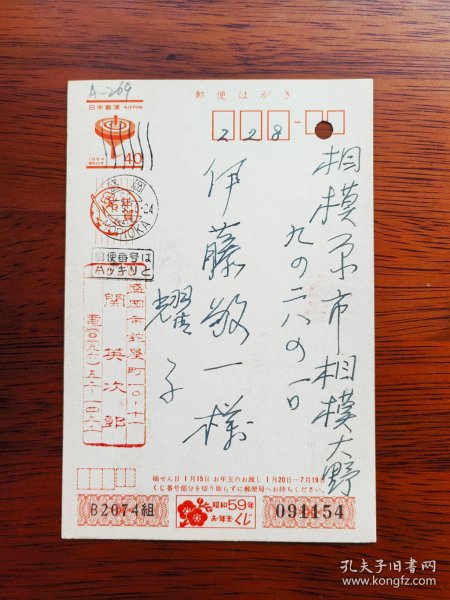 A-269
日本郵便 NIPPON
1984
40
年賀
MORIOKA
郵便番号は
ハッキリと
郵便はがき
228-
相模原市相模大野
九の二八の一〇
伊藤敬一様
耀子
盛岡市鉈屋町一〇-十一
関英次郎
抽せん日 1月15日 お年玉のお渡し 1月20日―7月19日
くじ番号部分を切り取らずに郵便局へお持ちください。
B2074組
昭和59年
お年玉くじ
091154
孔夫子旧书网
www.kongfz.com